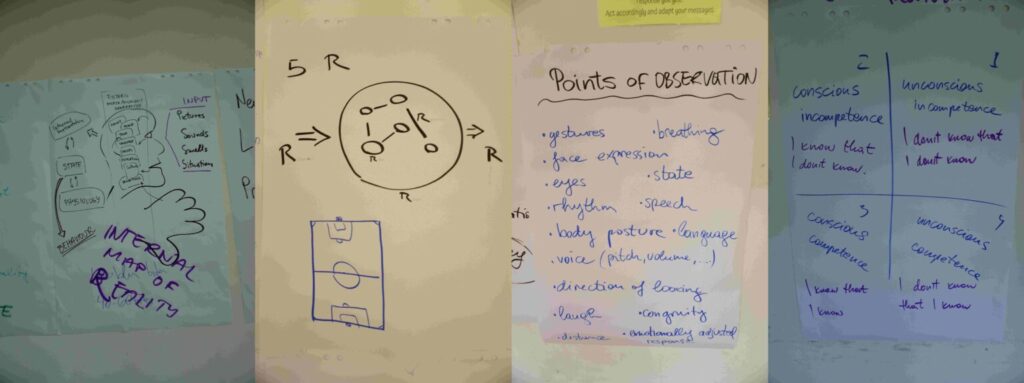 INPUT
Pictures
Sounds
Smells
Situation
STATE
PHYSIOLOGY
BEHAVIOUR
INTERNAL
MAP OF
REALITY
5 R
R
R
R
R
R
Act accordingly and adapt your messages
Points of OBSERVATION
• gestures
• breathing
• face expression
• eyes
• state
• rhythm
• speech
• body posture
• language
• voice (pitch, volume, ...)
• direction of looking
• laugh
• congruity
• distance
• emotionally adjusted
response
2
conscious
incompetence
I know that
I don't know.
1
unconscious
incompetence
I don't know that
I don't know
3
conscious
competence
I know that
I know
4
unconscious
competence
I don't know
that I know